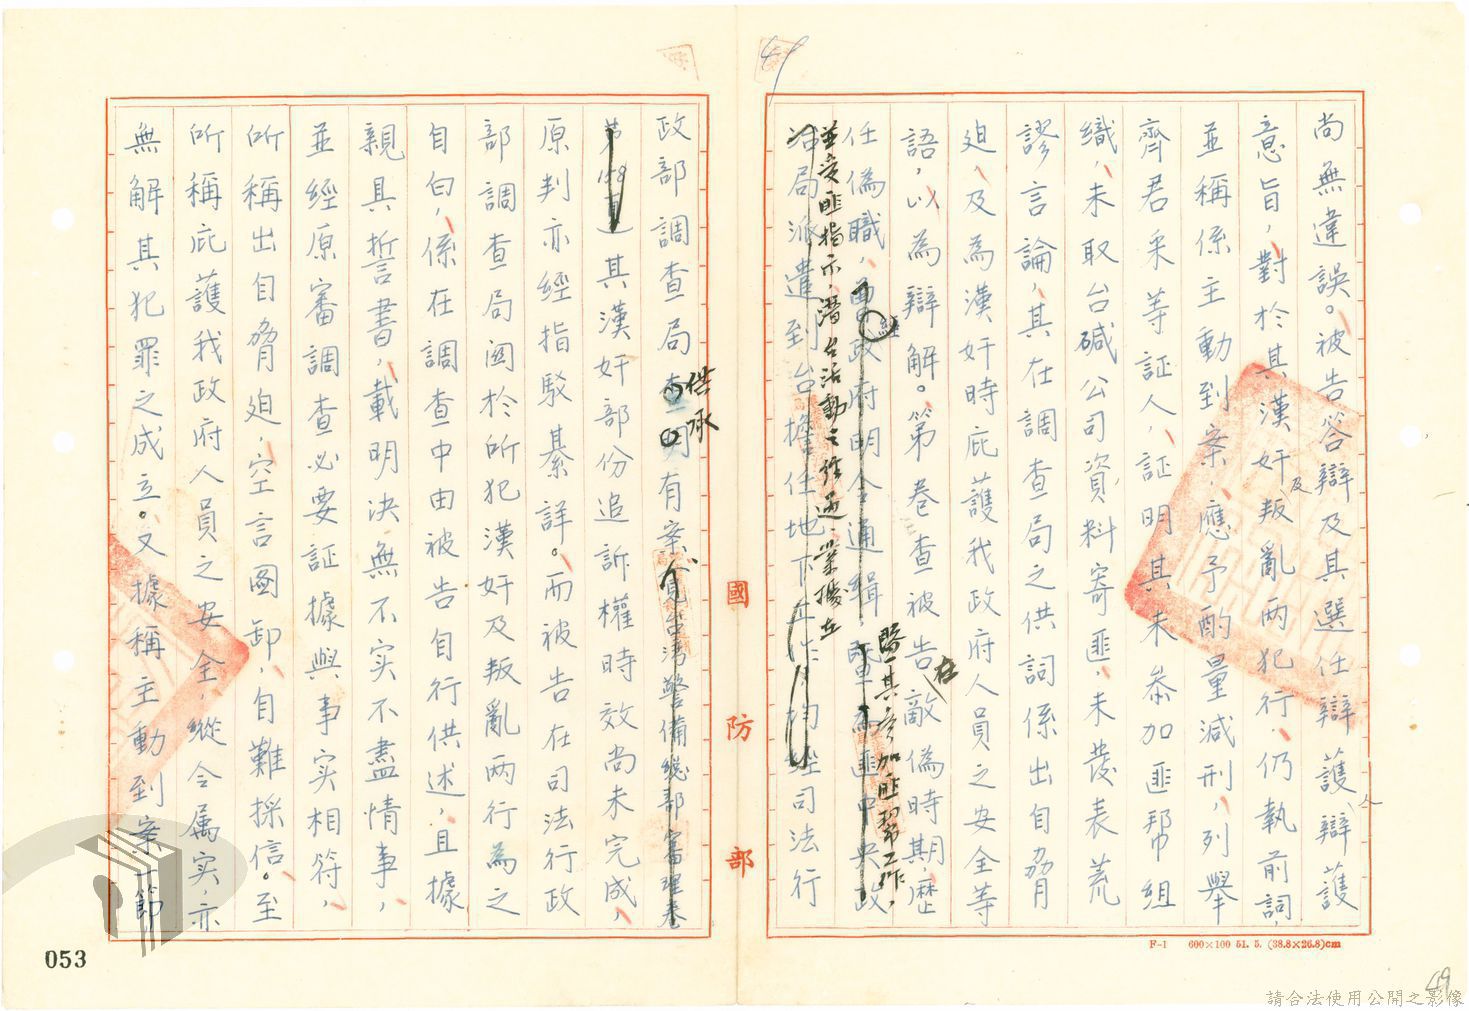 尚無違誤。被告答辯及其選任辯護人辯護
意旨，對於其漢奸及叛亂兩犯行，仍執前詞，
並稱係主動到案，應予酌量減刑，列舉
齊君采等証人，証明其未參加匪帮組
織，未取台碱公司資料寄匪，未發表荒
謬言論，其在調查局之供詞係出自脅
迫，及為漢奸時庇護我政府人員之安全等
語，以為辯解。第卷查被告在敵偽時期，歷
任偽職，曾經政府明令通緝，暨其參加匪幫工作，
既為匪中央政
並受匪指示，潛台活動之經過，業據在
治局派遣到台擔任地下工作，均經司法行
政部調查局供承
查明有案（見台湾警備總部審理卷
第158頁
其漢奸部份追訴權時效尚未完成，
原判亦經指駁綦詳。而被告在司法行政
部調查局関於所犯漢奸及叛亂兩行為之
自白，係在調查中由被告自行供述，且據
親具誓書，載明決無不实不盡情事，
並經原審調查必要証據與事实相符，
所稱出自脅迫，空言圖卸，自難採信。至
所稱庇護我政府人員之安全，縱令属实，亦
無解其犯罪之成立。又據稱主動到案一節，
國防部
F-1 600×100 51. 5. (38.8×26.8)cm
053
49
請合法使用公開之影像